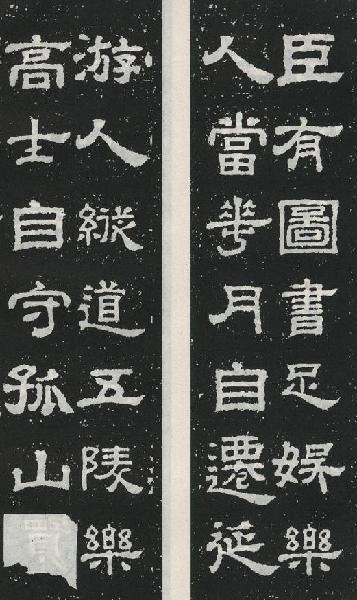 臣有圖書足娛樂
人當華月自遷延
游人縱道五陵樂
高士自守孤山